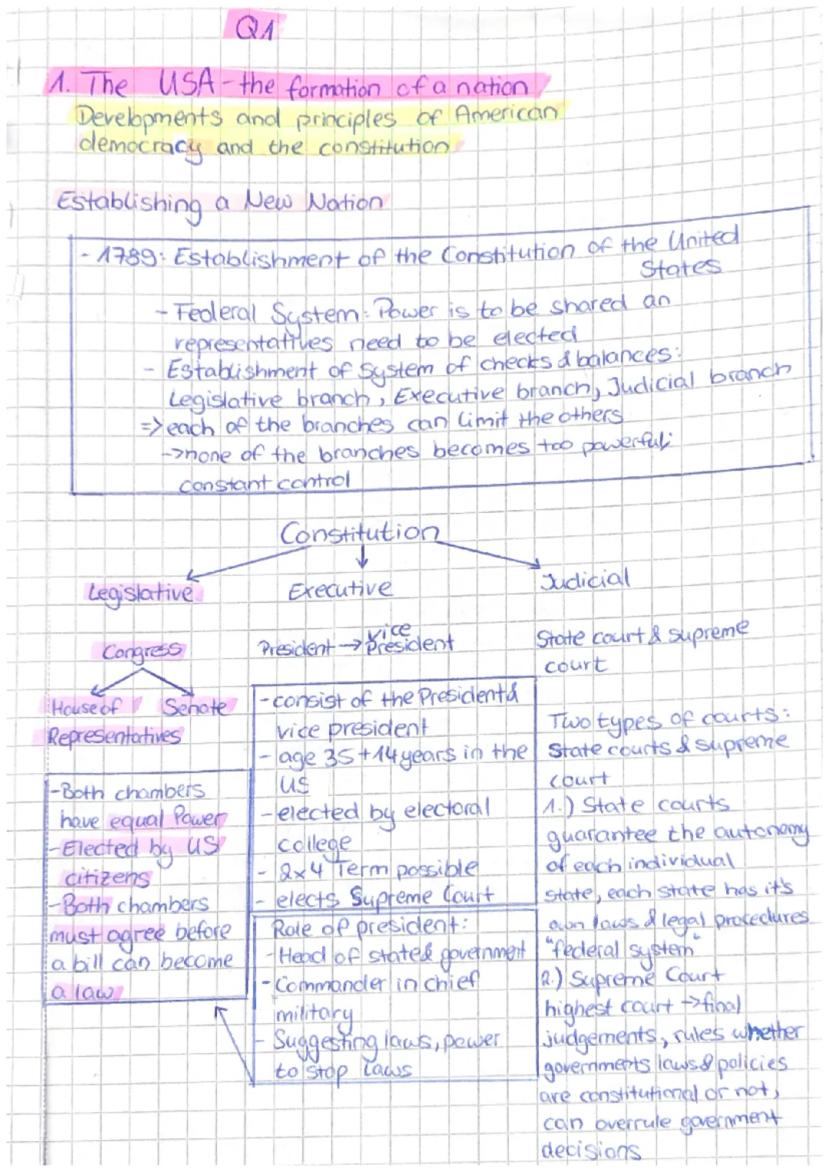 Q1
1. The USA - the formation of a nation
Developments and principles of American
democracy and the constitution
Establishing a New Nation
- 1789: Establishment of the Constitution of the United
States
- Federal System: Power is to be shared an
representatives need to be elected
- Establishment of System of checks & balances:
Legislative branch, Executive branch, Judicial branch
=> each of the branches can limit the others
-> none of the branches becomes too powerful;
constant control
Constitution
Legislative
Executive
Judicial
Congress
House of
Representatives
Senate
- Both chambers
have equal Power
- Elected by US
citizens
- Both chambers
must agree before
a bill can become
a law
President → vice
president
- consist of the President &
vice president
- age 35 + 14 years in the
US
- elected by electoral
college
- 2x4 Term possible
- elects Supreme Court
Role of president:
- Head of state & government
- Commander in chief
military
- Suggesting laws, power
to stop laws
State court & supreme
court
Two types of courts:
State courts & supreme
court
1.) State courts
guarantee the autonomy
of each individual
state, each state has it's
own laws & legal procedures
"federal system"
2.) Supreme Court
highest court → final
judgements, rules whether
governments laws & policies
are constitutional or not,
can overrule government
decisions